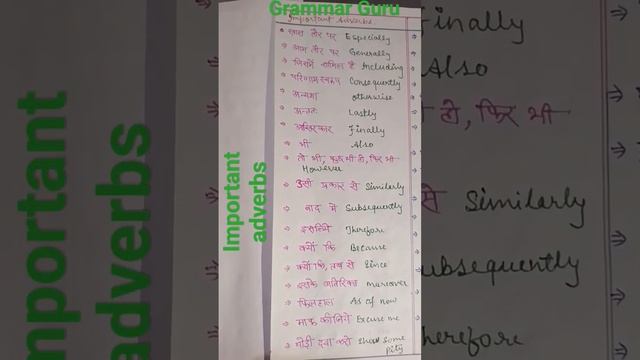 Grammar Guru
Important Adverbs
खास तौर पर Especially
आम तौर पर Generally
जिसमें शामिल है Including
परिणामस्वरूप Consequently
अन्यथा otherwise
अन्ततः Lastly
आखिरकार Finally
भी Also
तो भी, कुछ भी हो, फिर भी
However
उसी प्रकार से Similarly
बाद में Subsequently
इसलिये Therefore
क्यों कि Because
क्यों कि, तब से Since
इसके अतिरिक्त Moreover
फिलहाल As of now
माफ कीजिये Excuse me
थोड़ी दया करो show some
pity
Important
adverbs
mportant
adverbs
Finally
Also
हो, फिर भी
से Similarly
ubsequently
herefore